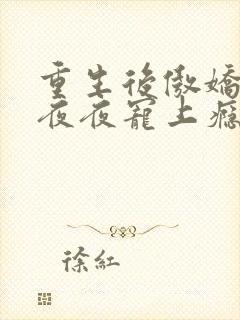 重生後傲嬌
夜夜寵上癮
徐紅